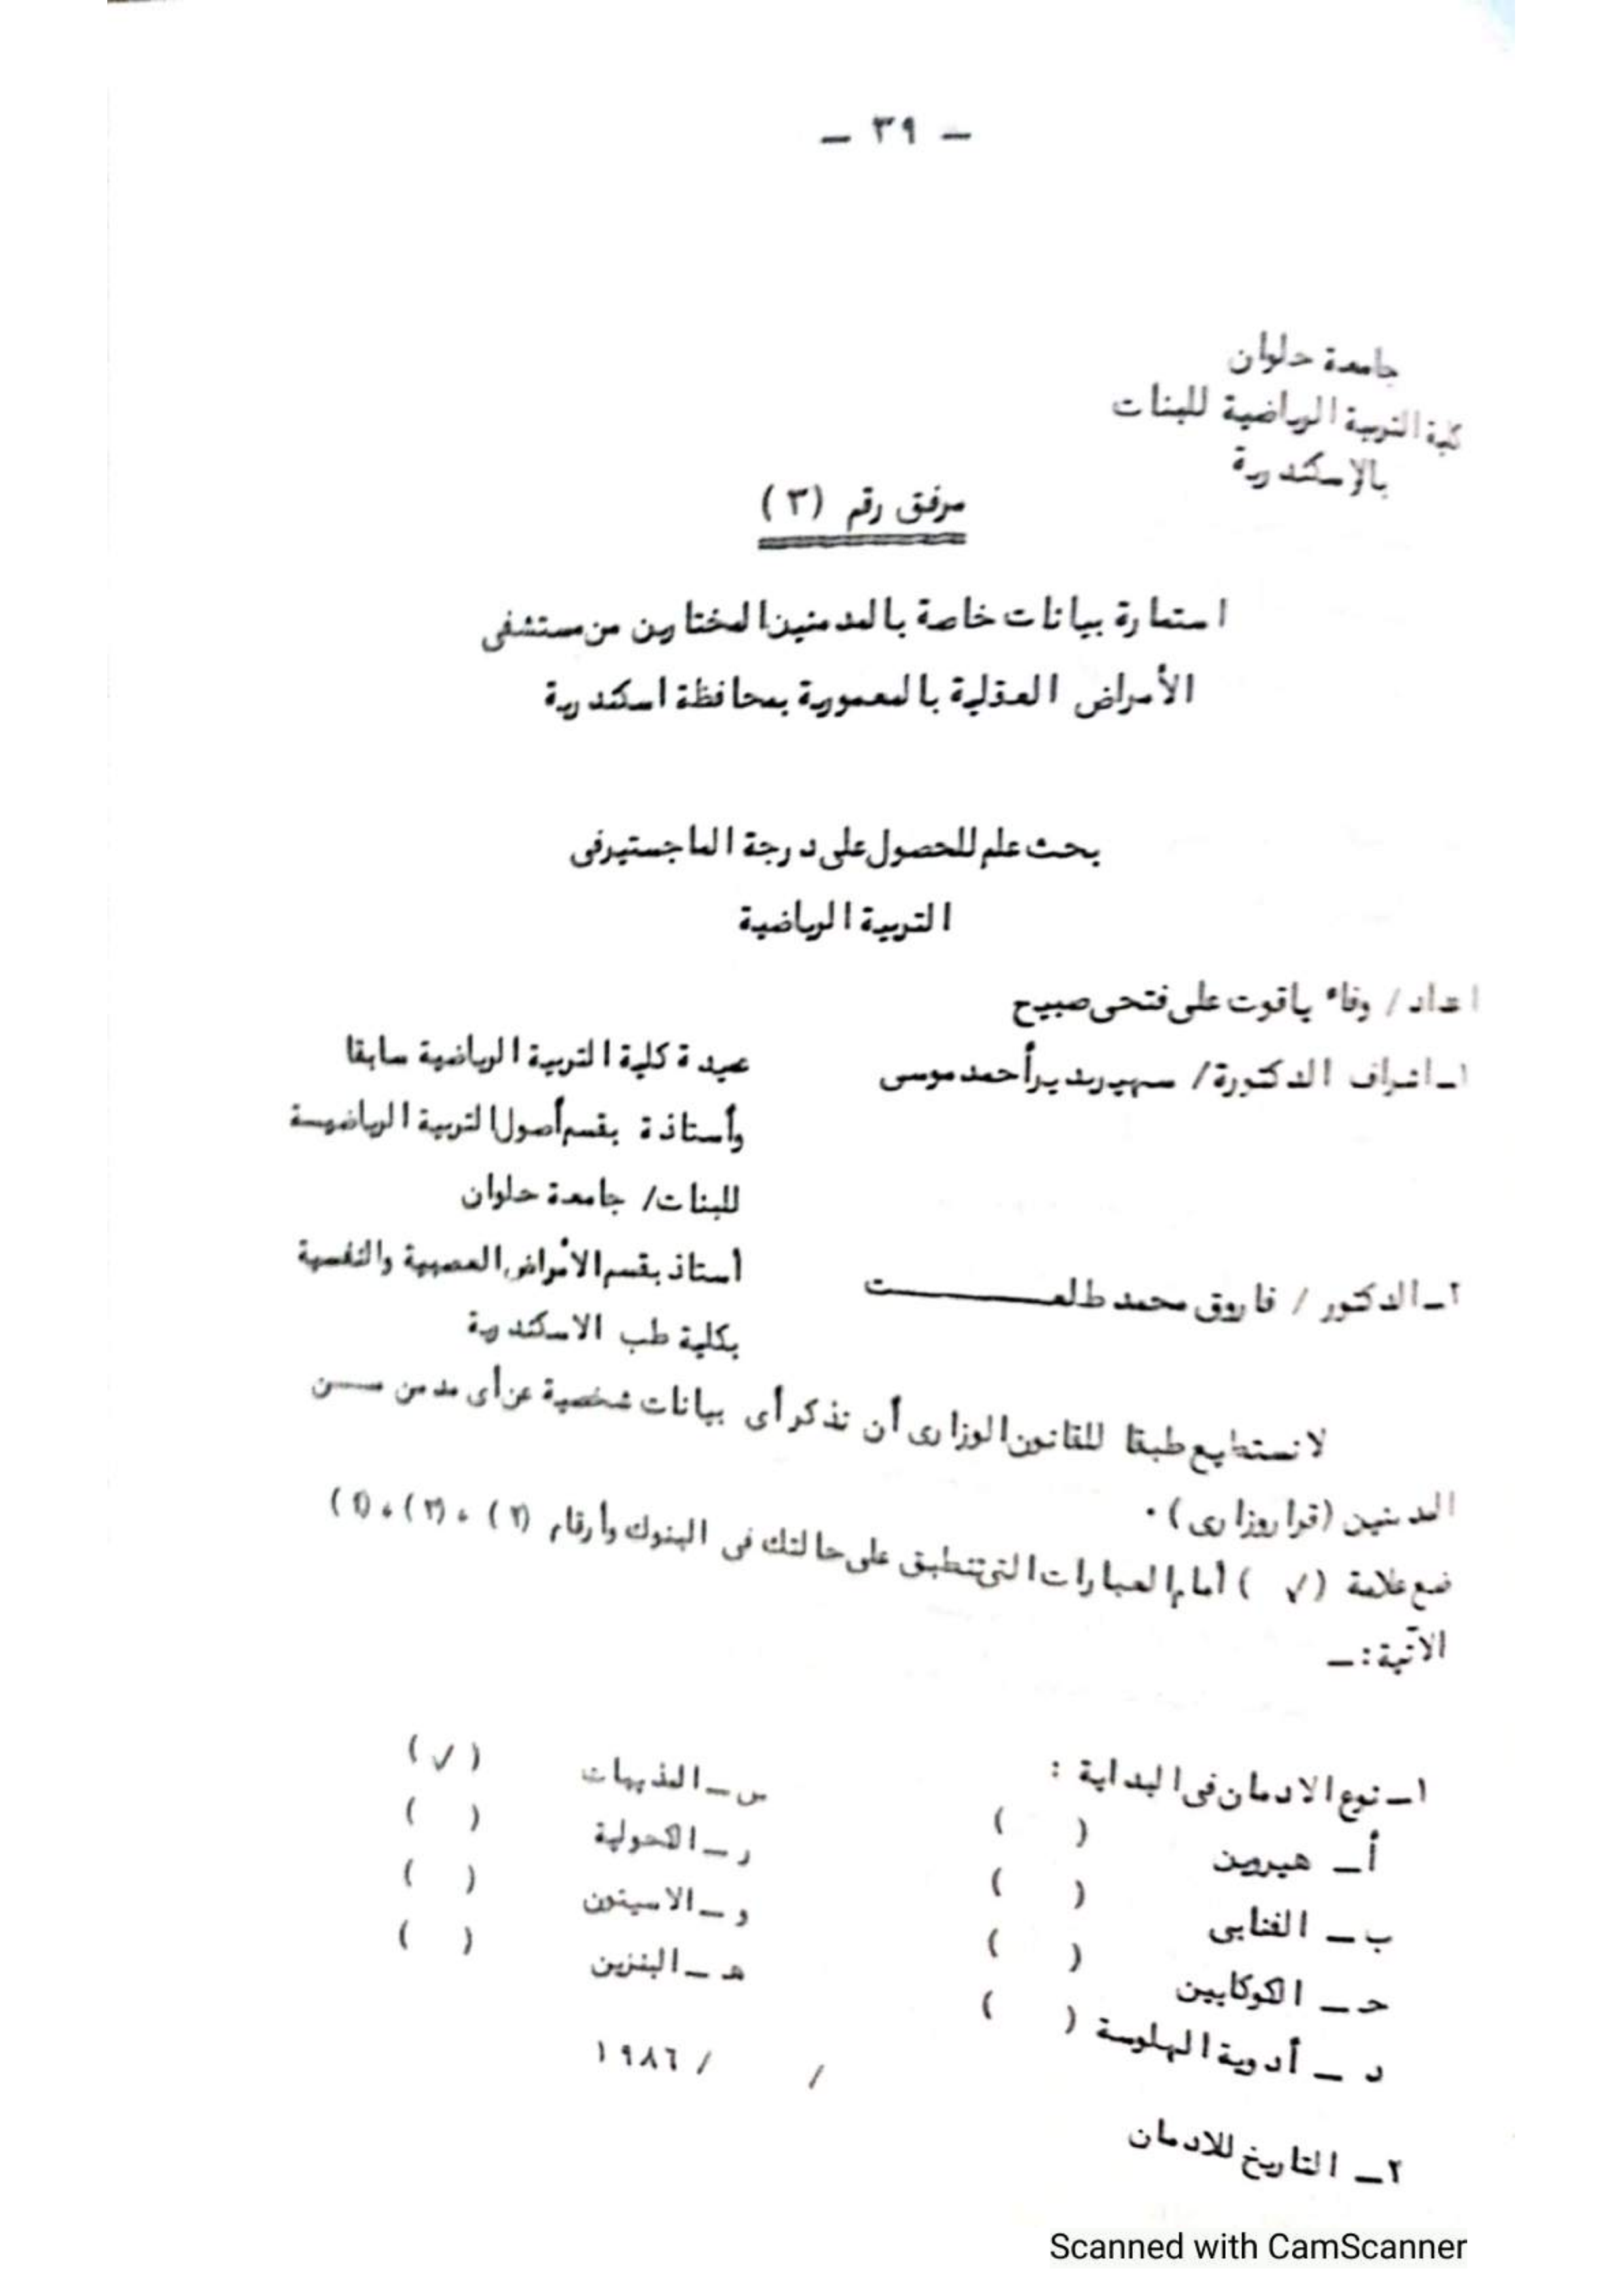 — ٣٩ —
جامعة حلوان
كلية التربية الرياضية للبنات
بالإسكندرية
مرفق رقم (٣)
استمارة بيانات خاصة بالمدمنين المختارين من مستشفى
الأمراض العقلية بالمعمورة بمحافظة اسكندرية
بحث علم للحصول على درجة الماجستير فى
التربية الرياضية
اعداد / وفاء ياقوت على فتحى صبيح
١ـ اشراف الدكتورة / سهير بدير أحمد موسى
عميدة كلية التربية الرياضية سابقا
وأستاذة بقسم أصول التربية الرياضية
للبنات / جامعة حلوان
٢ـ الدكتور / فاروق محمد طلعت
أستاذ بقسم الأمراض العصبية والنفسية
بكلية طب الاسكندرية
لا نستطيع طبقا للقانون الوزارى أن نذكر أى بيانات شخصية عن أى مدمن من
المدمنين (قرار وزارى) .
ضع علامة (√) أمام العبارات التى تنطبق على حالتك فى البنوك وأرقام
الآتية :ـ
١ـ نوع الادمان فى البداية :
أ ـ هيروين ( )
ب ـ ( )
حـ ـ الكوكايين ( )
د ـ أدوية الهلوسة ( )
س ـ المذيبات (√)
ر ـ الكحولية ( )
و ـ الاسيتون ( )
هـ ـ البنزين ( )
٢ـ التاريخ للادمان / / ١٩٨٦
Scanned with CamScanner